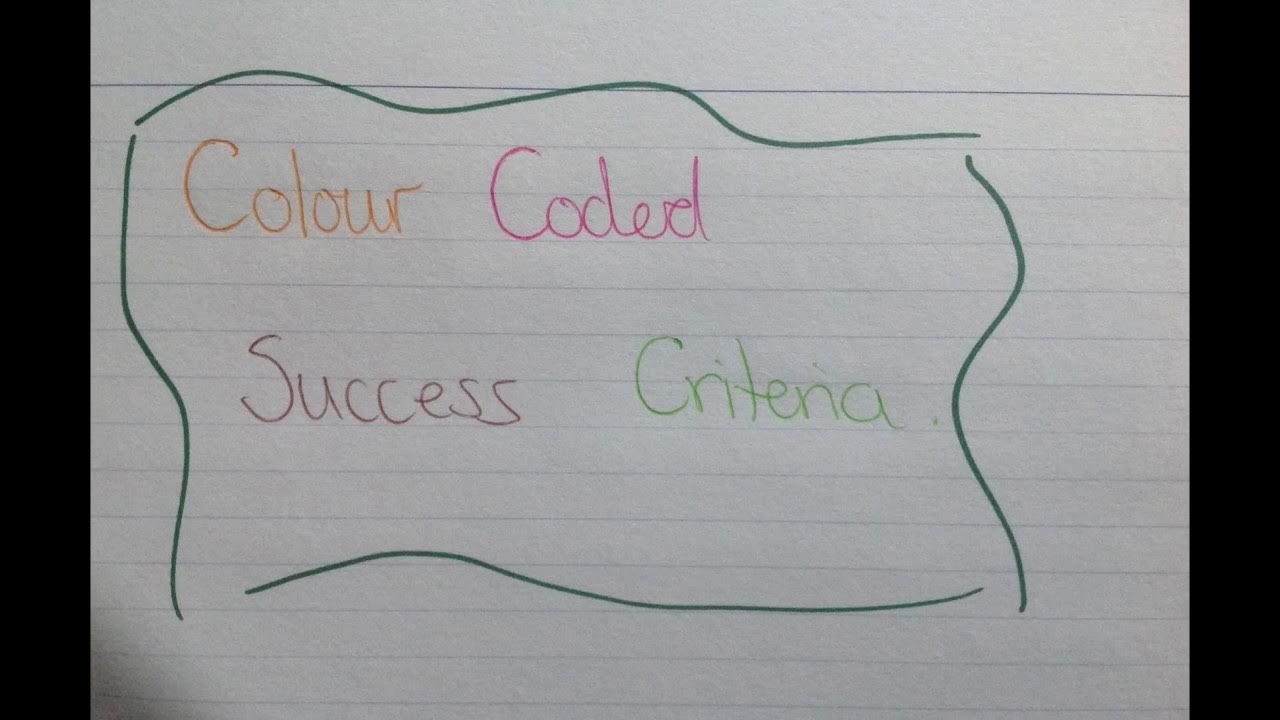 Colour Coded
Success Criteria.